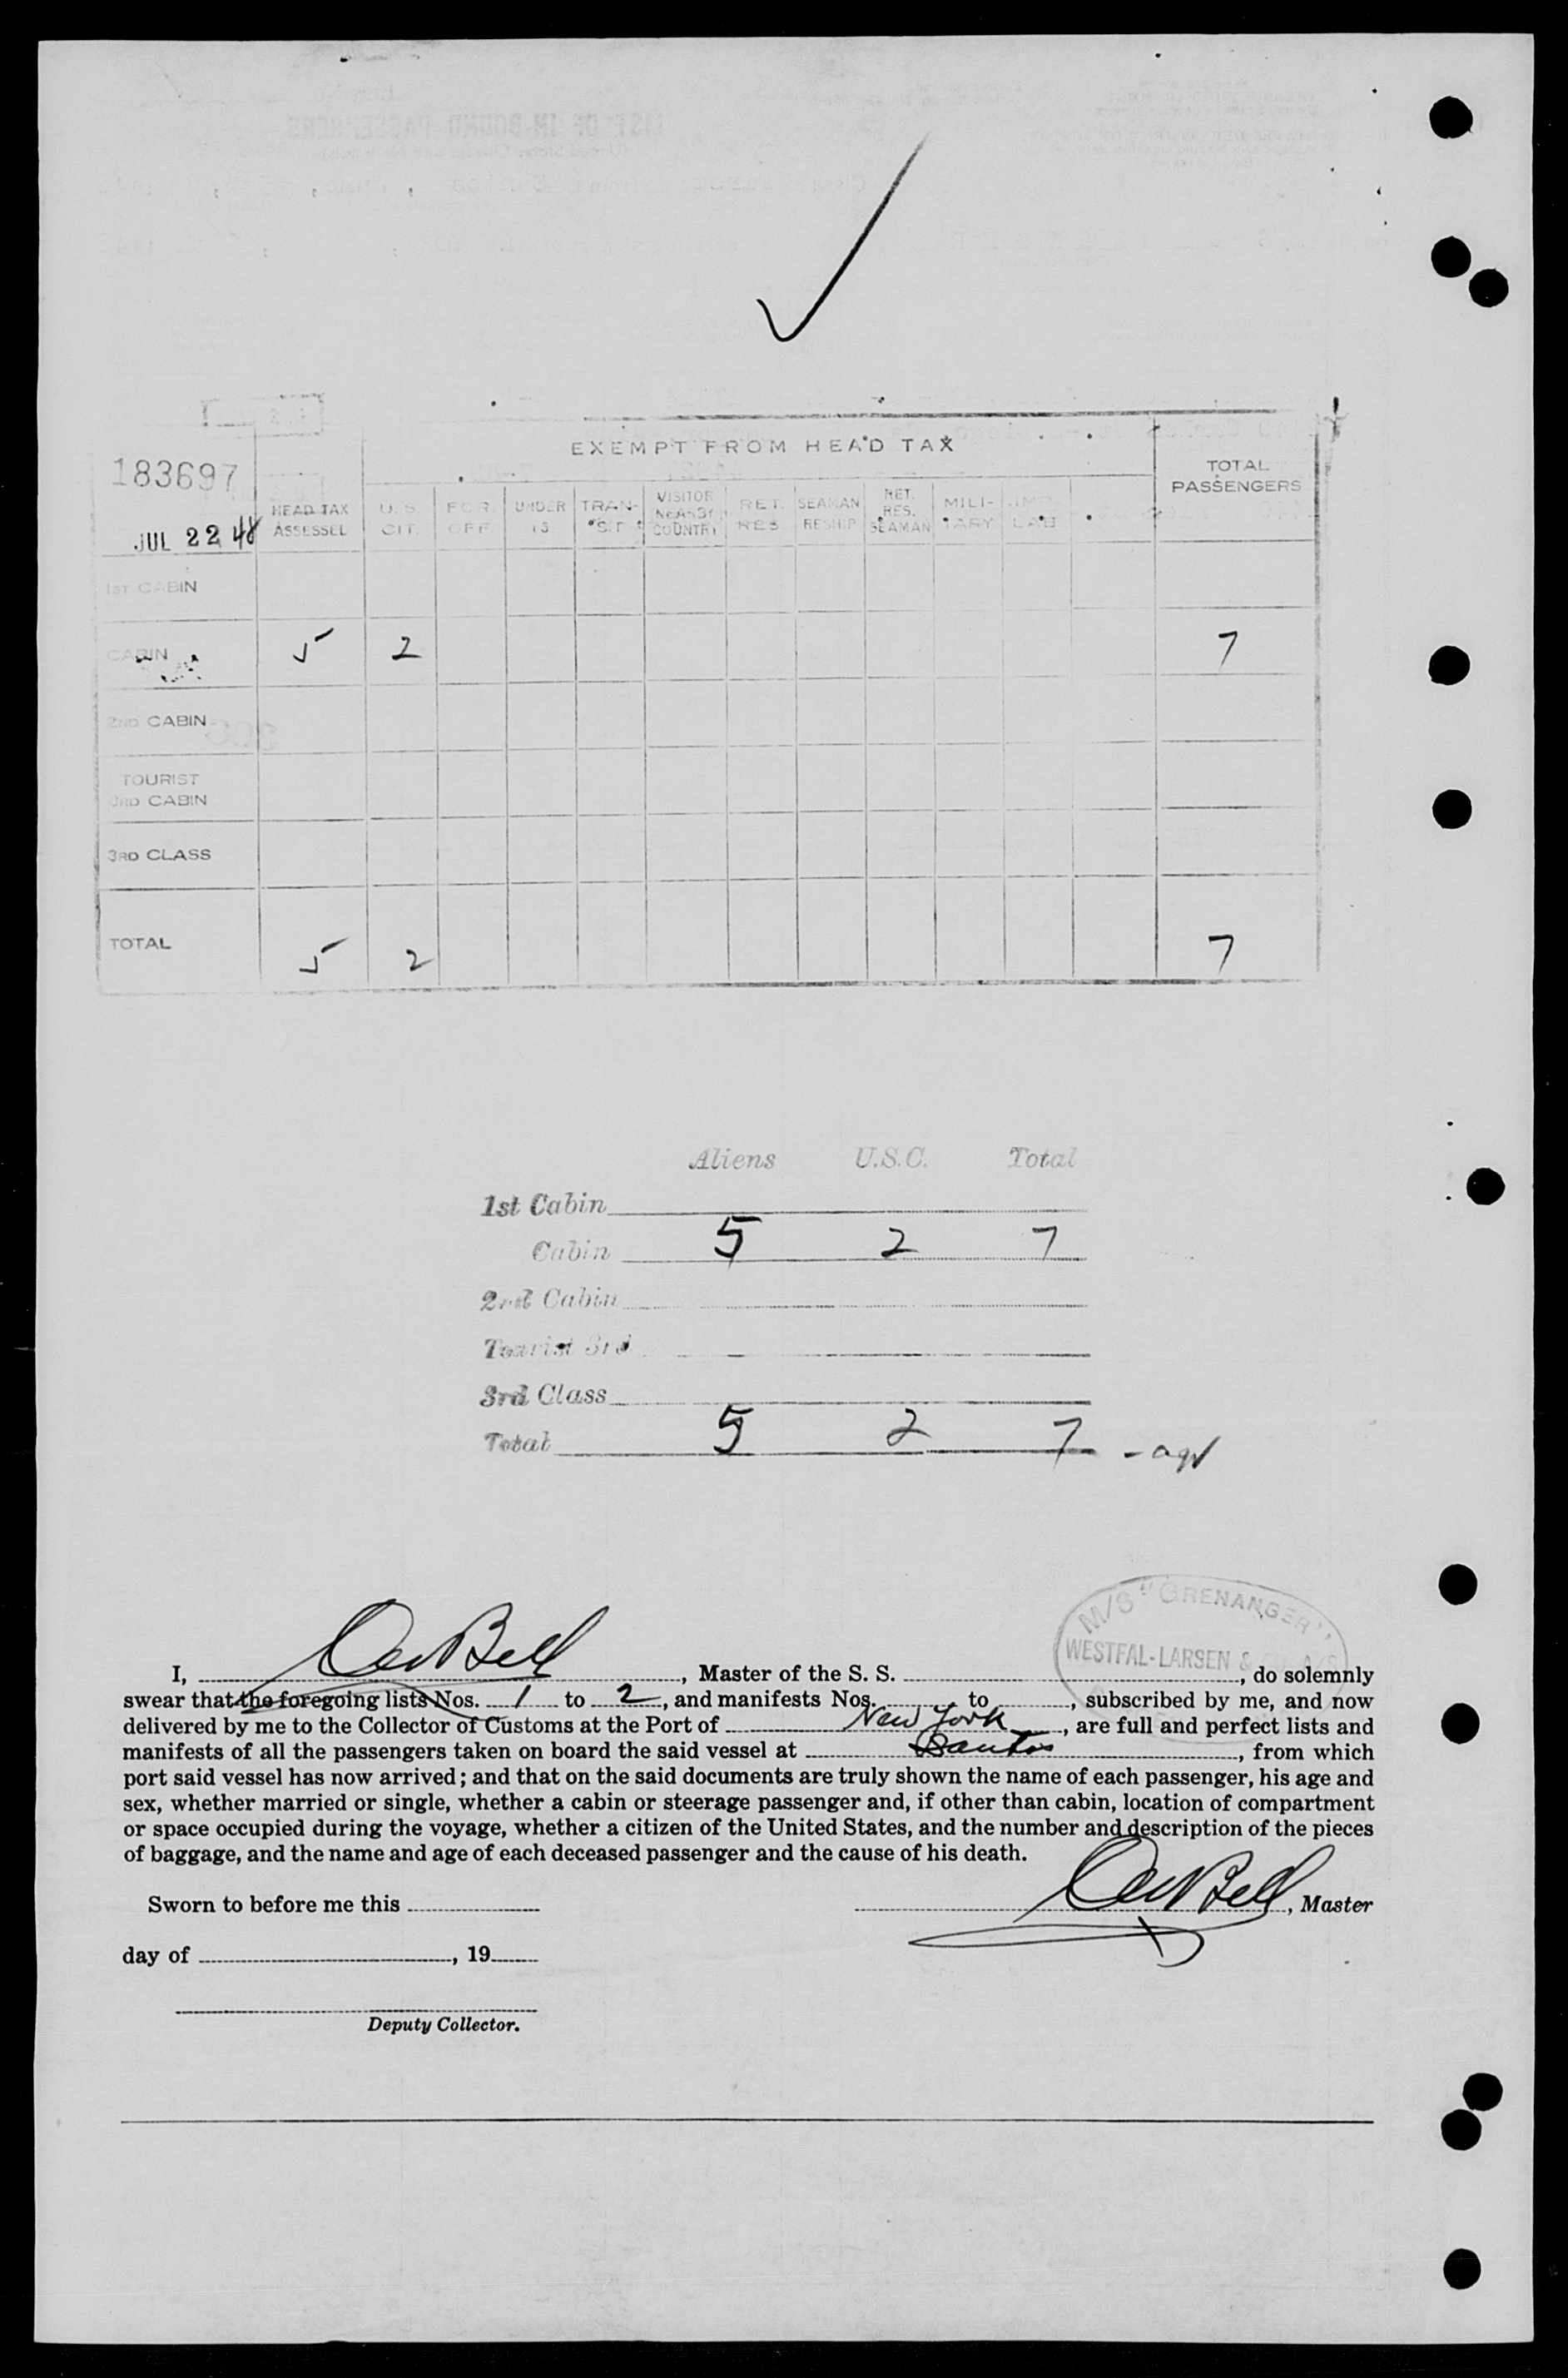 EXEMPT FROM HEAD TAX
183697
JUL 22 48
HEAD TAX ASSESSED
U. S. CIT.
FOR. OFF
UNDER 16
TRANSIT
VISITOR COUNTRY
RET. RES
SEAMAN RESHIP
RET. RES. SEAMAN
MILITARY
TOTAL PASSENGERS
1ST CABIN
CABIN 5 2 7
2ND CABIN
TOURIST
3RD CABIN
3RD CLASS
TOTAL 5 2 7
Aliens U.S.C. Total
1st Cabin
Cabin 5 2 7
2nd Cabin
Tourist 3rd
3rd Class
Total 5 2 7
M/S "GRENANGER"
WESTFAL-LARSEN & CO. A/S
I, , Master of the S. S. , do solemnly
swear that the foregoing lists Nos. 1 to 2, and manifests Nos. to , subscribed by me, and now
delivered by me to the Collector of Customs at the Port of New York, are full and perfect lists and
manifests of all the passengers taken on board the said vessel at Santos, from which
port said vessel has now arrived; and that on the said documents are truly shown the name of each passenger, his age and
sex, whether married or single, whether a cabin or steerage passenger and, if other than cabin, location of compartment
or space occupied during the voyage, whether a citizen of the United States, and the number and description of the pieces
of baggage, and the name and age of each deceased passenger and the cause of his death.
Sworn to before me this
, Master
day of , 19
Deputy Collector.